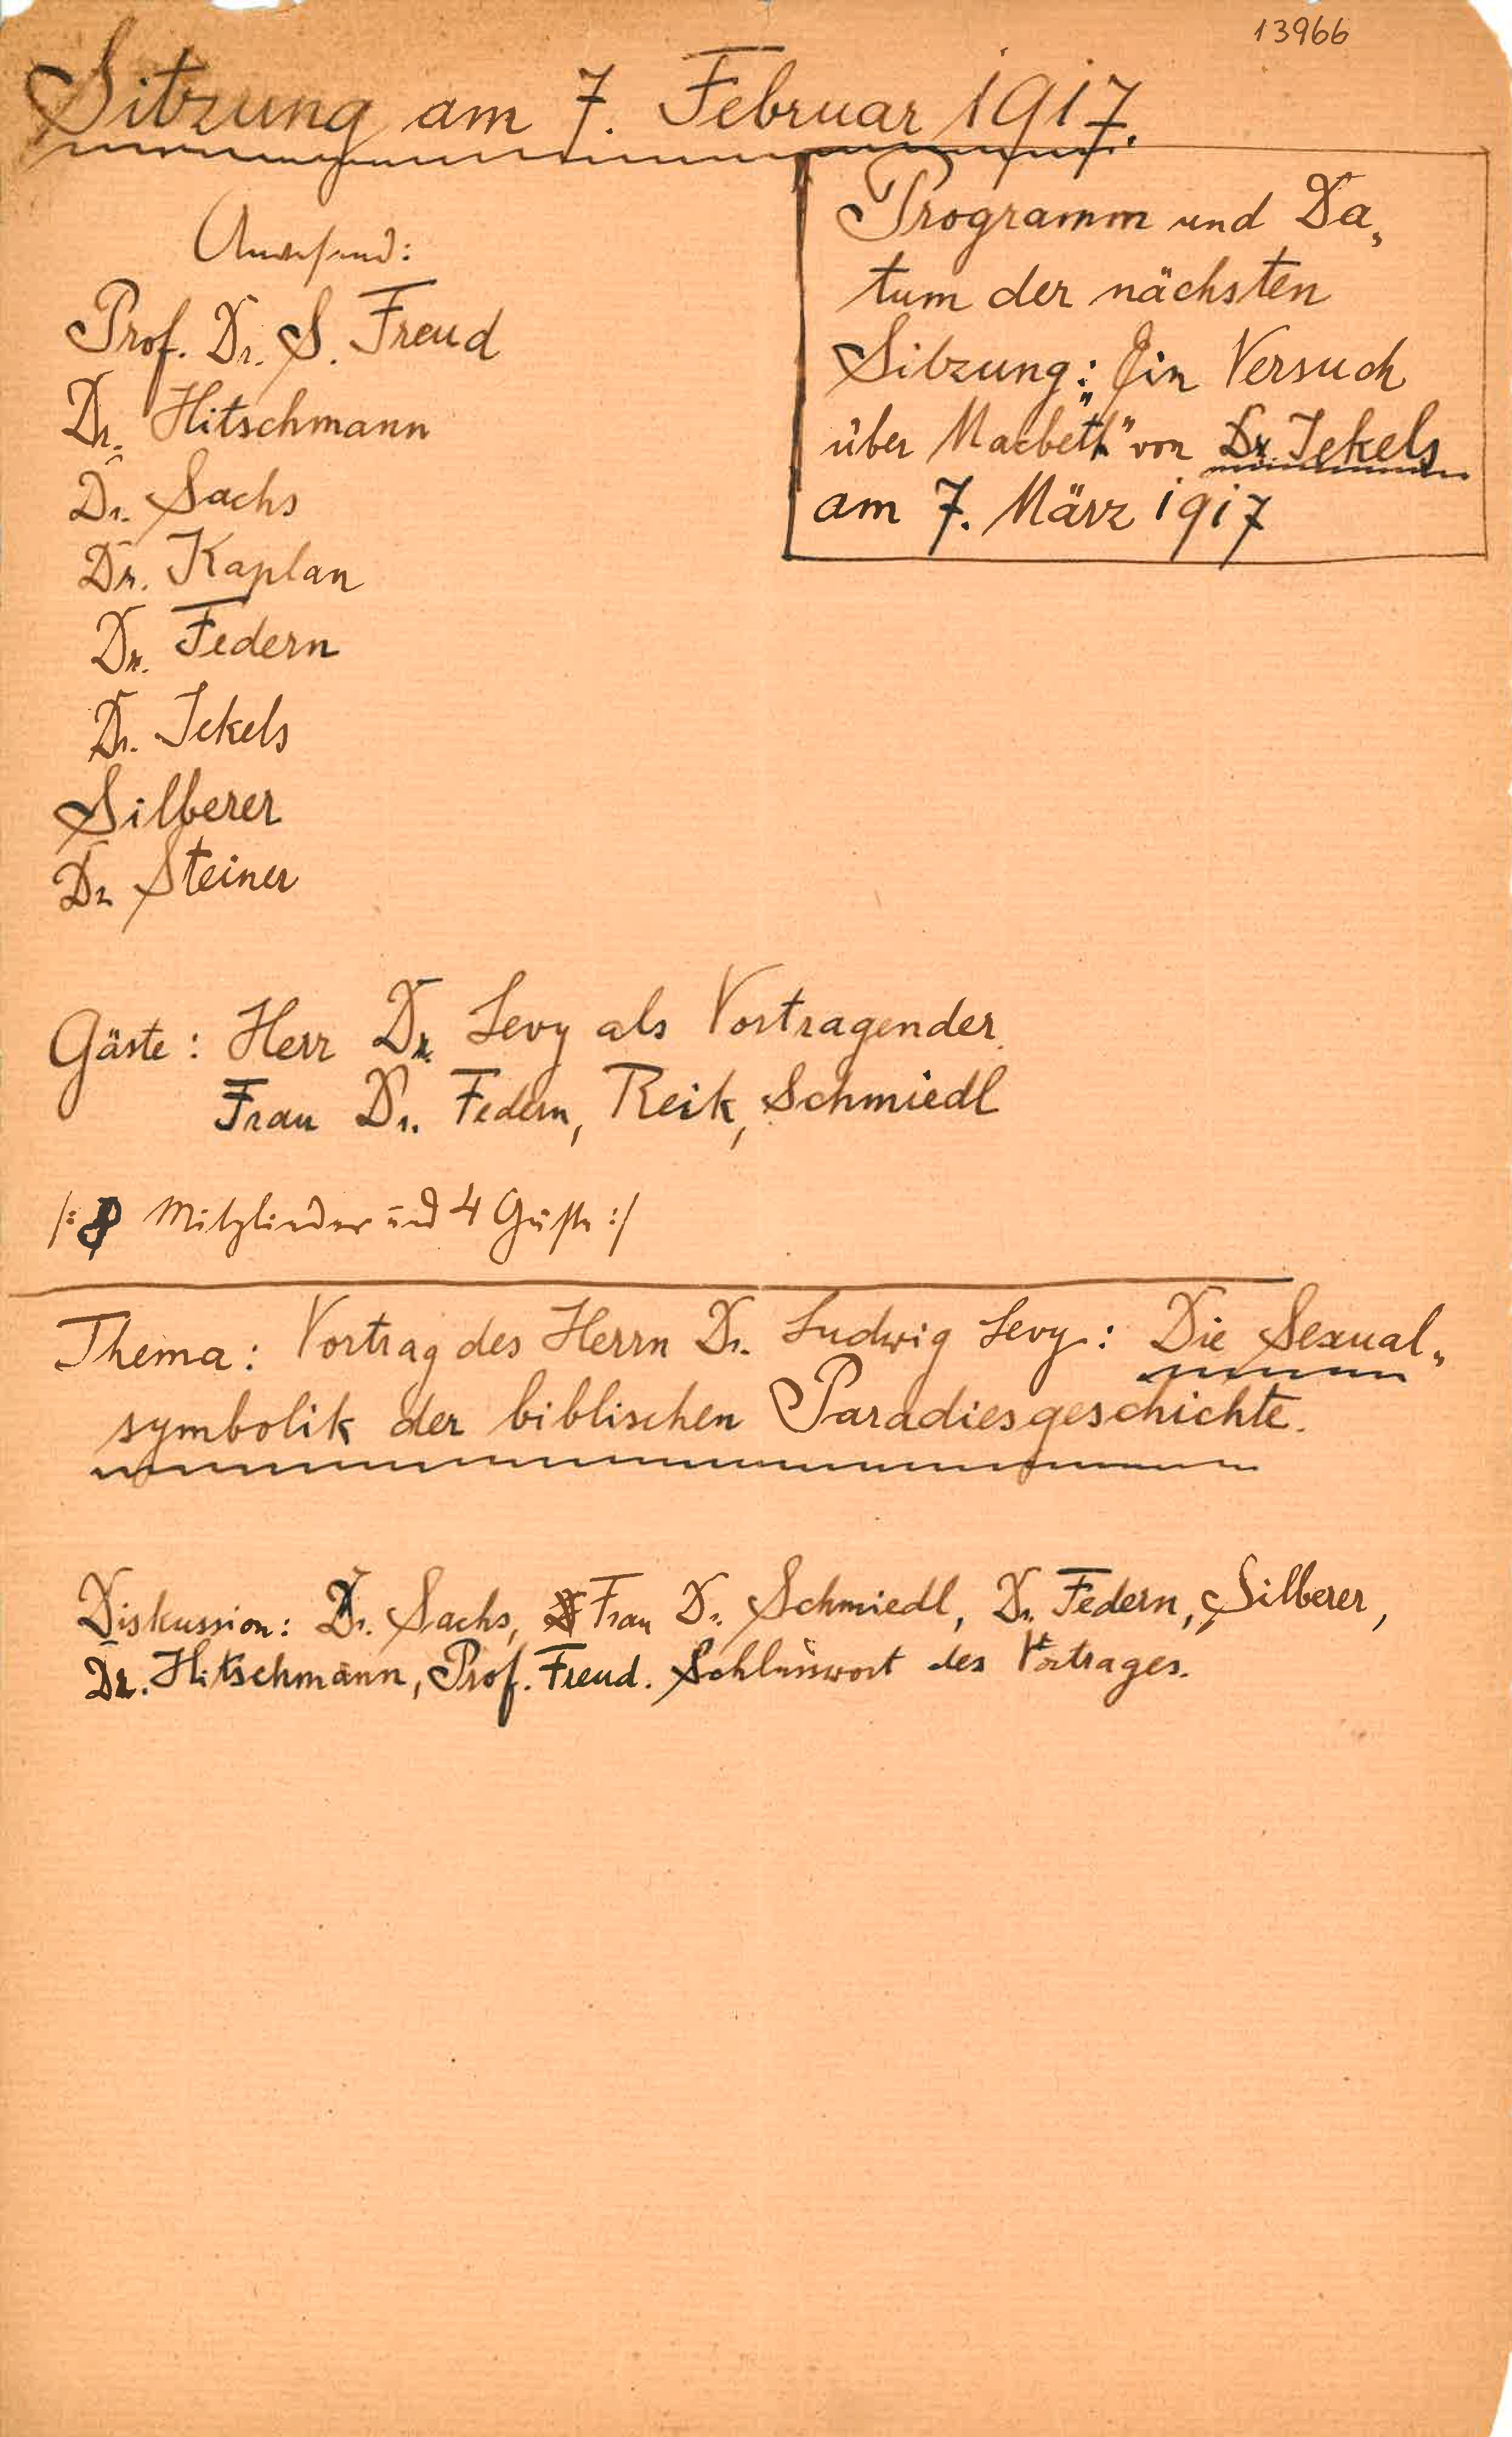 13966
Sitzung am 7. Februar 1917.
Anwesend:
Prof. Dr. S. Freud
Dr. Hitschmann
Dr. Sachs
Dr. Kaplan
Dr. Federn
Dr. Jekels
Silberer
Dr Steiner
Programm und Da„
tum der nächsten
Sitzung: „Ein Versuch
über Macbeth" von Dr. Jekels
am 7. März 1917
Gäste: Herr Dr. Levy als Vortragender.
Frau Dr. Federn, Reik, Schmiedl
/: 8 Mitglieder und 4 Gäste :/
Thema: Vortrag des Herrn Dr. Ludwig Levy: Die Sexual„
symbolik der biblischen Paradiesgeschichte.
Diskussion: Dr. Sachs, Frau Dr. Schmiedl, Dr. Federn, Silberer,
Dr. Hitschmann, Prof. Freud. Schlusswort des Vortrages.